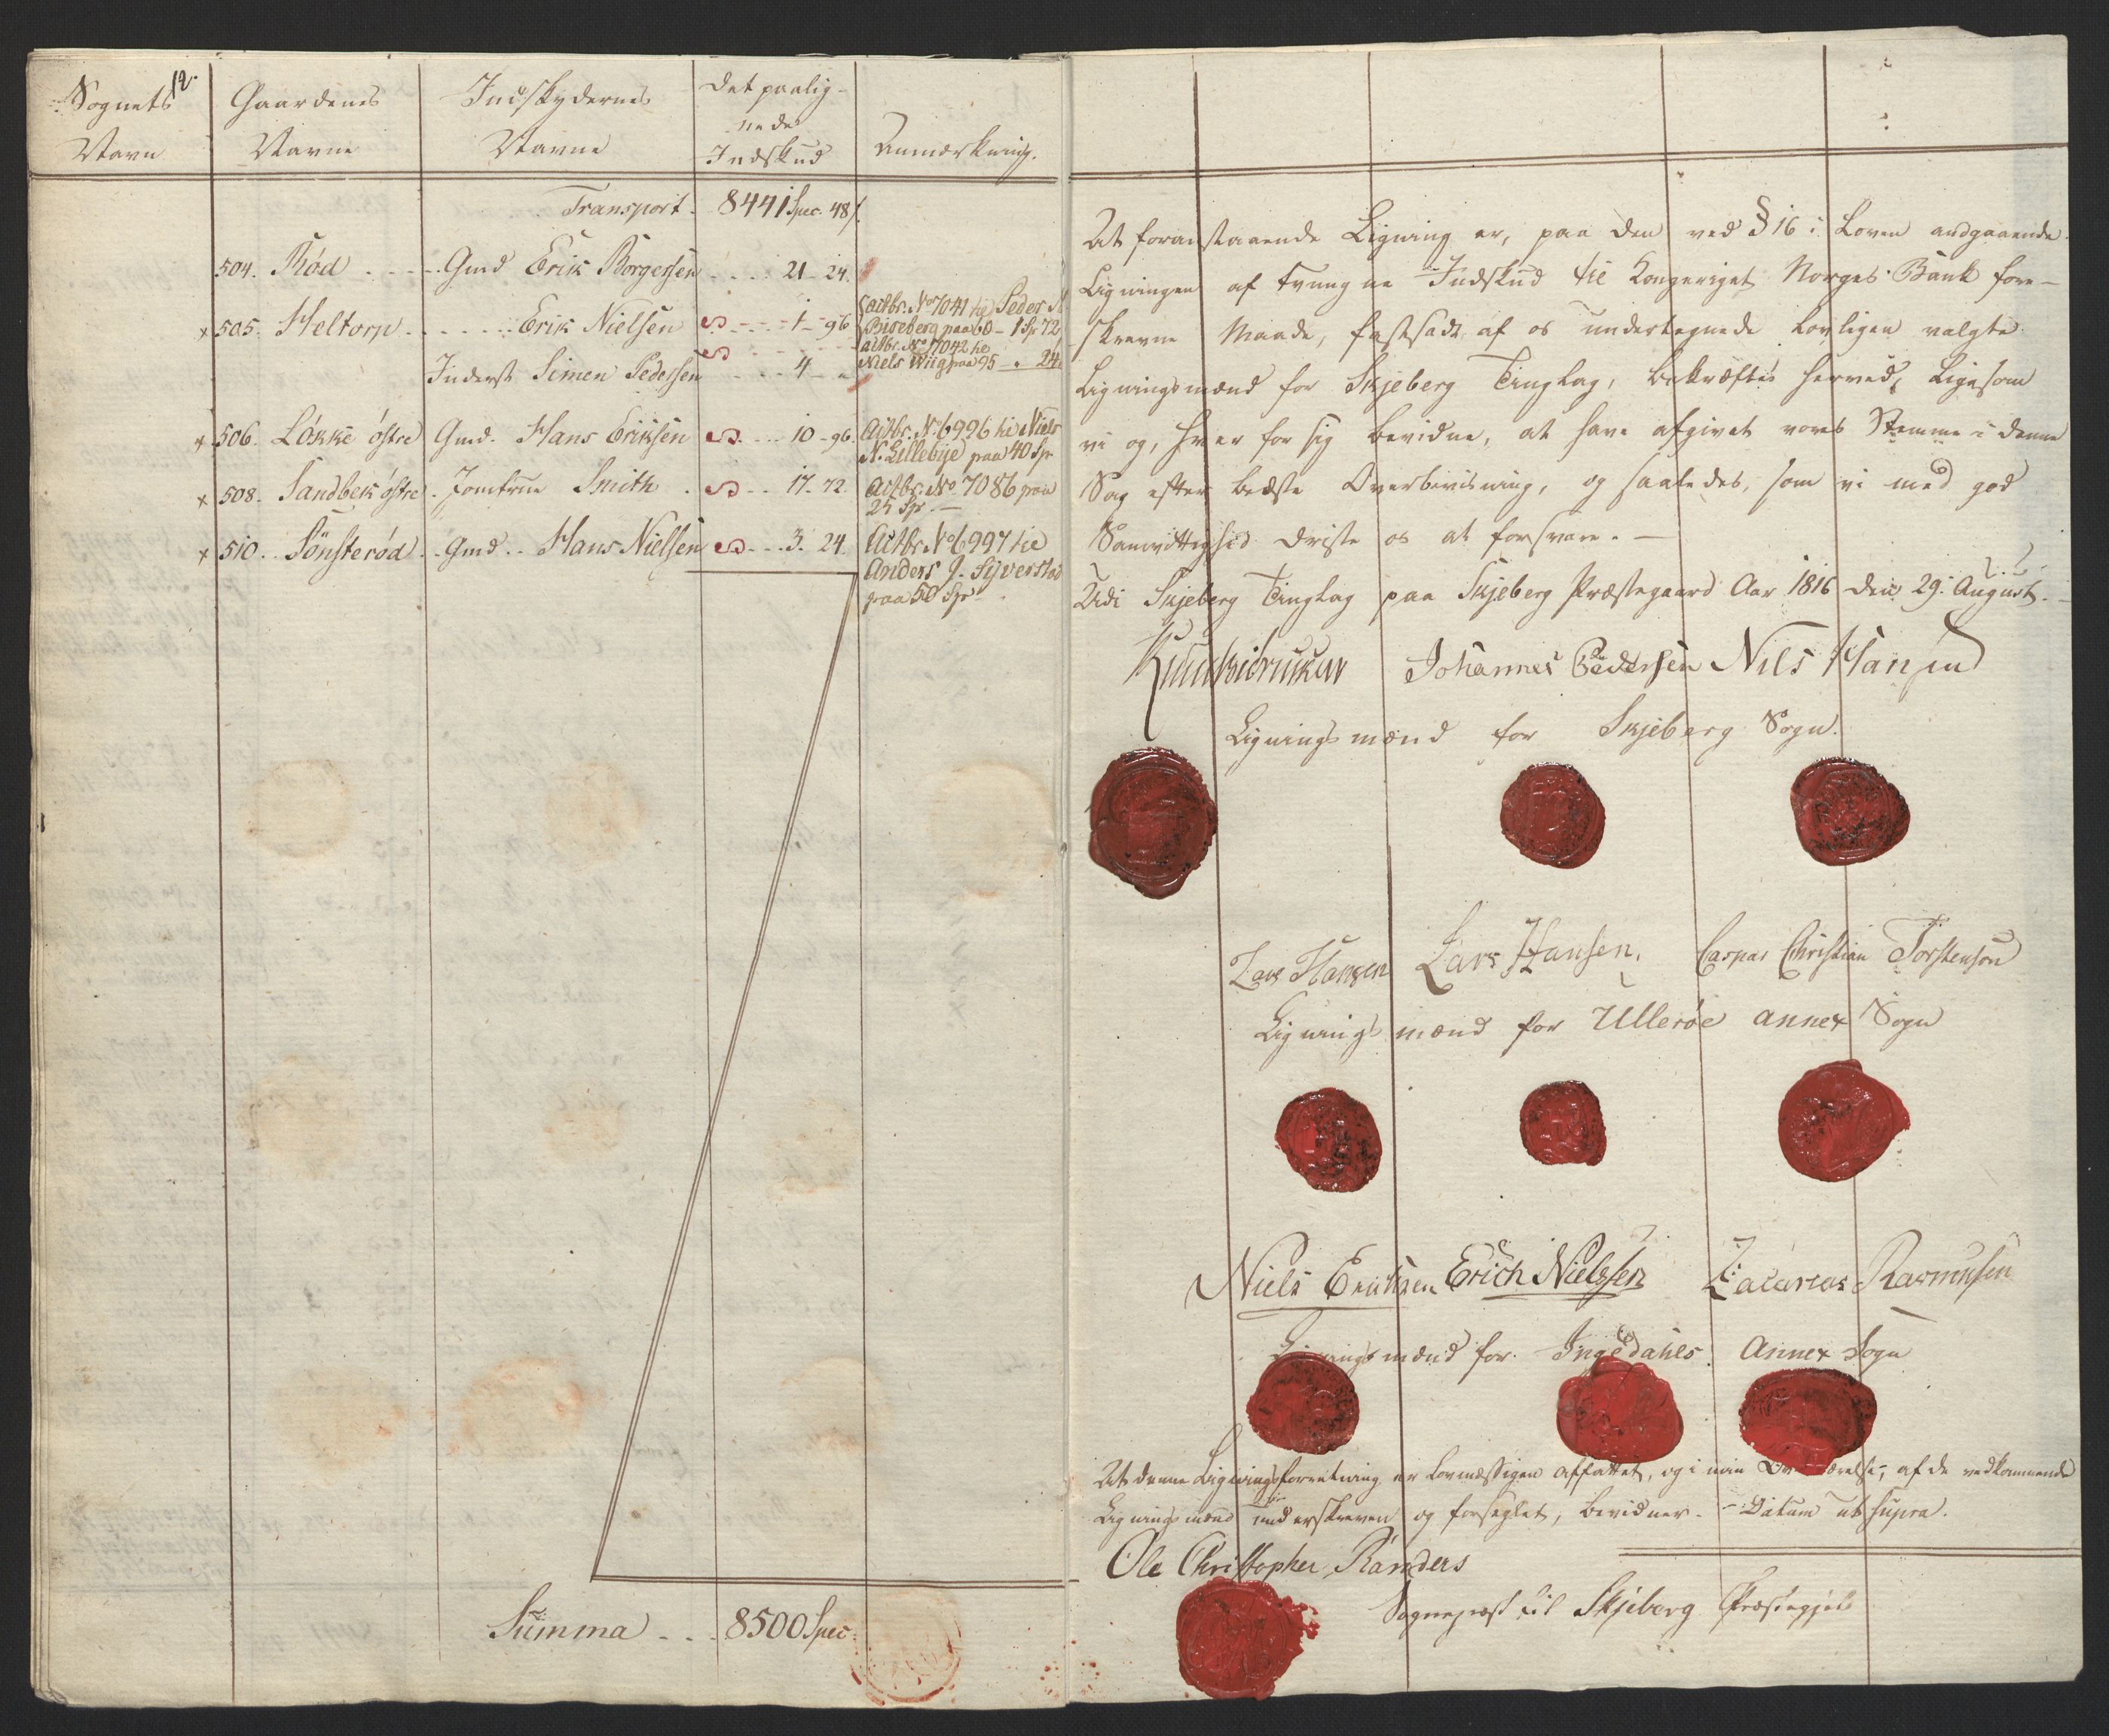 12
Sognets Gaardenes Indskydernes Det paalig-
Navn Navne Navne nede Anmærkning.
Indskud
Transport. 8441 Spec. 48 ſ.
504. Rød - - - Gmd Erik Borgersen - - - 21 - 24.
x 505. Heltorp - - - Erik Nielsen - - - 1 - 96 Actbr. No 7041 til Peder N
Biseberg paa 60 - 1 Sp 72
Actbr. No 7042 til
Inderst Simen Pedersen - - - 4 - " Niels Wiig paa 95 - " 24
x 506. Løkke østre Gmd. Hans Eriksen - - - 10 - 96. Actbr. No 6996 til Niels
N. Lillebye paa 40 Sp
x 508. Sandbek østre. Jomfrue Smith - - 17 - 72. Actbr. No 7086 paa
25 Sp. -
x 510. Sønsterød - Gmd. - Hans Nielsen - - - 3. 24. Actbr. No 6997 til
Anders J. Syverstad
paa 50 Sp
Summa - - 8500 Spec.
At foranstaaende Ligning er, paa den ved § 16 i Loven andgaaende
Ligningen af tvungne Indskud til Kongeriget Norges Bank fore-
skrevne Maade, fastsadt af os undertegnede lovligen valgte
Ligningsmænd for Skjeberg Tinglag, bekræftes herved, ligesom
vi og, hver for sig bevidne, at have afgivet vores Stemme i denne
Sag efter bedste Overbevisning, og saaledes, som vi med god
Samvittighed driste os at forsvare. -
Udi Skjeberg Tinglag paa Skjeberg Præstegaard Aar 1816 den 29. August.
Johannes Pedersen Nils Hansen
Ligningsmænd for Skjeberg Sogn.
Lars Hansen Lars Hansen. Caspar Christian Torstenson
Ligningsmænd for Ullerøe annex Sogn
Niels Erichsen Erich Nielssen Zacarias Rasmusen
Ligningsmænd for Ingedahls Annex Sogn
At denne Ligningsforretning er lovmæssigen affattet, og i min Overværelse, af de vedkommende
Ligningsmænd underskreven og forseglet, bevidner. - Datum ut supra.
Ole Christopher Randers
Sognepræst til Skjeberg Præstegjeld